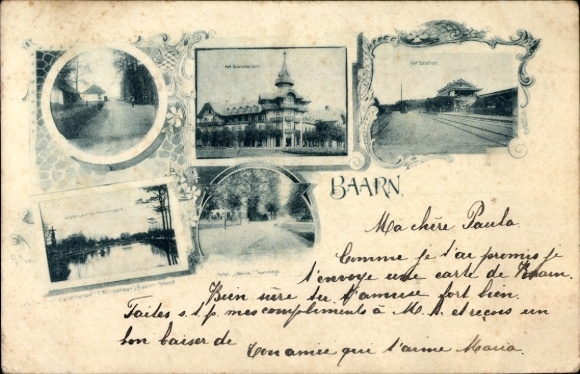 Het Sanatorium.
Het Station.
BAARN.
Ma chère Paula
Comme je t'ai promis je
t'envoye une carte de Baarn.
Bien sûre tu t'amuse fort bien.
Faites s.t.p mes compliments à M. et reçois un
bon baiser de
Ton amie qui t'aime Maria.